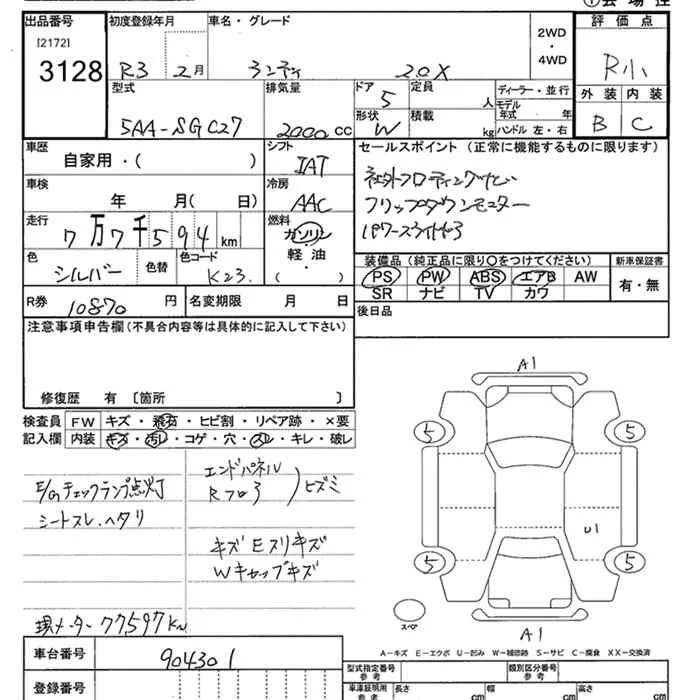 ①会場控
出品番号 初度登録年月 車名・グレード 2WD・4WD 評価点
[2172]
3128 R3 2月 ランディ 2.0X R小
型式 排気量 ドア 5 定員 人 ディーラー・並行 外装 内装
モデル年式 年
5AA-SGC27 2000cc 形状 W 積載 kg ハンドル 左・右 B C
車歴 自家用・( ) シフト IAT セールスポイント (正常に機能するものに限ります)
社外フロアティング
車検 年 月( 日) 冷房 AAC フリップダウンモニター
走行 7万7千594km 燃料 ガソリン・軽油・( ) パワースライドドア
色 シルバー 色替 色コード K23. 装備品 (純正品に限り○をつけてください) 新車保証書
PS PW ABS エアB AW 有・無
SR ナビ TV カワ
R券 10870円 名変期限 月 日 後日品
注意事項申告欄(不具合内容等は具体的に記入して下さい)
修復歴 有 〔箇所 〕
検査員記入欄 FW キズ・飛石・ヒビ割・リペア跡・×要
内装 キズ・汚レ・コゲ・穴・スレ・キレ・破レ
E/Gチェックランプ点灯 エンドパネル
Rフロア ヒズミ
シートスレ、ヘタリ
キズEスリキズ
Wキャップキズ
現メーター77597Km
A1
5 5
U1
5 5
スペア
A1
A-キズ E-エクボ U-凹み W-補修跡 S-サビ C-腐食 XX-交換済
車台番号 904301
登録番号
型式指定番号 参考 類別区分番号 参考
車庫証明用 参考 長さ cm 幅 cm 高さ cm